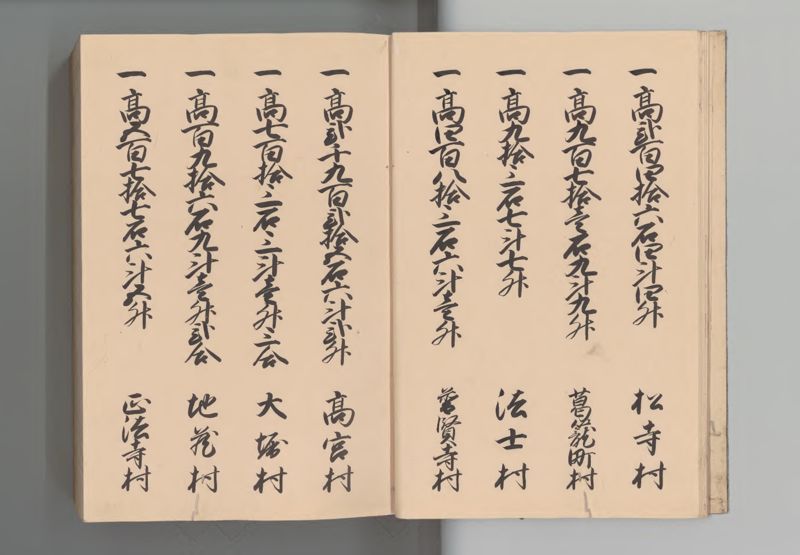 一 高弐百四拾六石四斗四升 松寺村
一 高九百七拾壱石九斗九升 葛籠町村
一 高九拾三石七斗七升 法士村
一 高四百八拾三石六斗壱升 普賢寺村
一 高弐千九百弐拾五石六斗弐升 高宮村
一 高七百拾三石三斗壱升三合 大堀村
一 高百九拾六石九斗壱升弐合 地蔵村
一 高五百七拾七石六斗五升 正法寺村